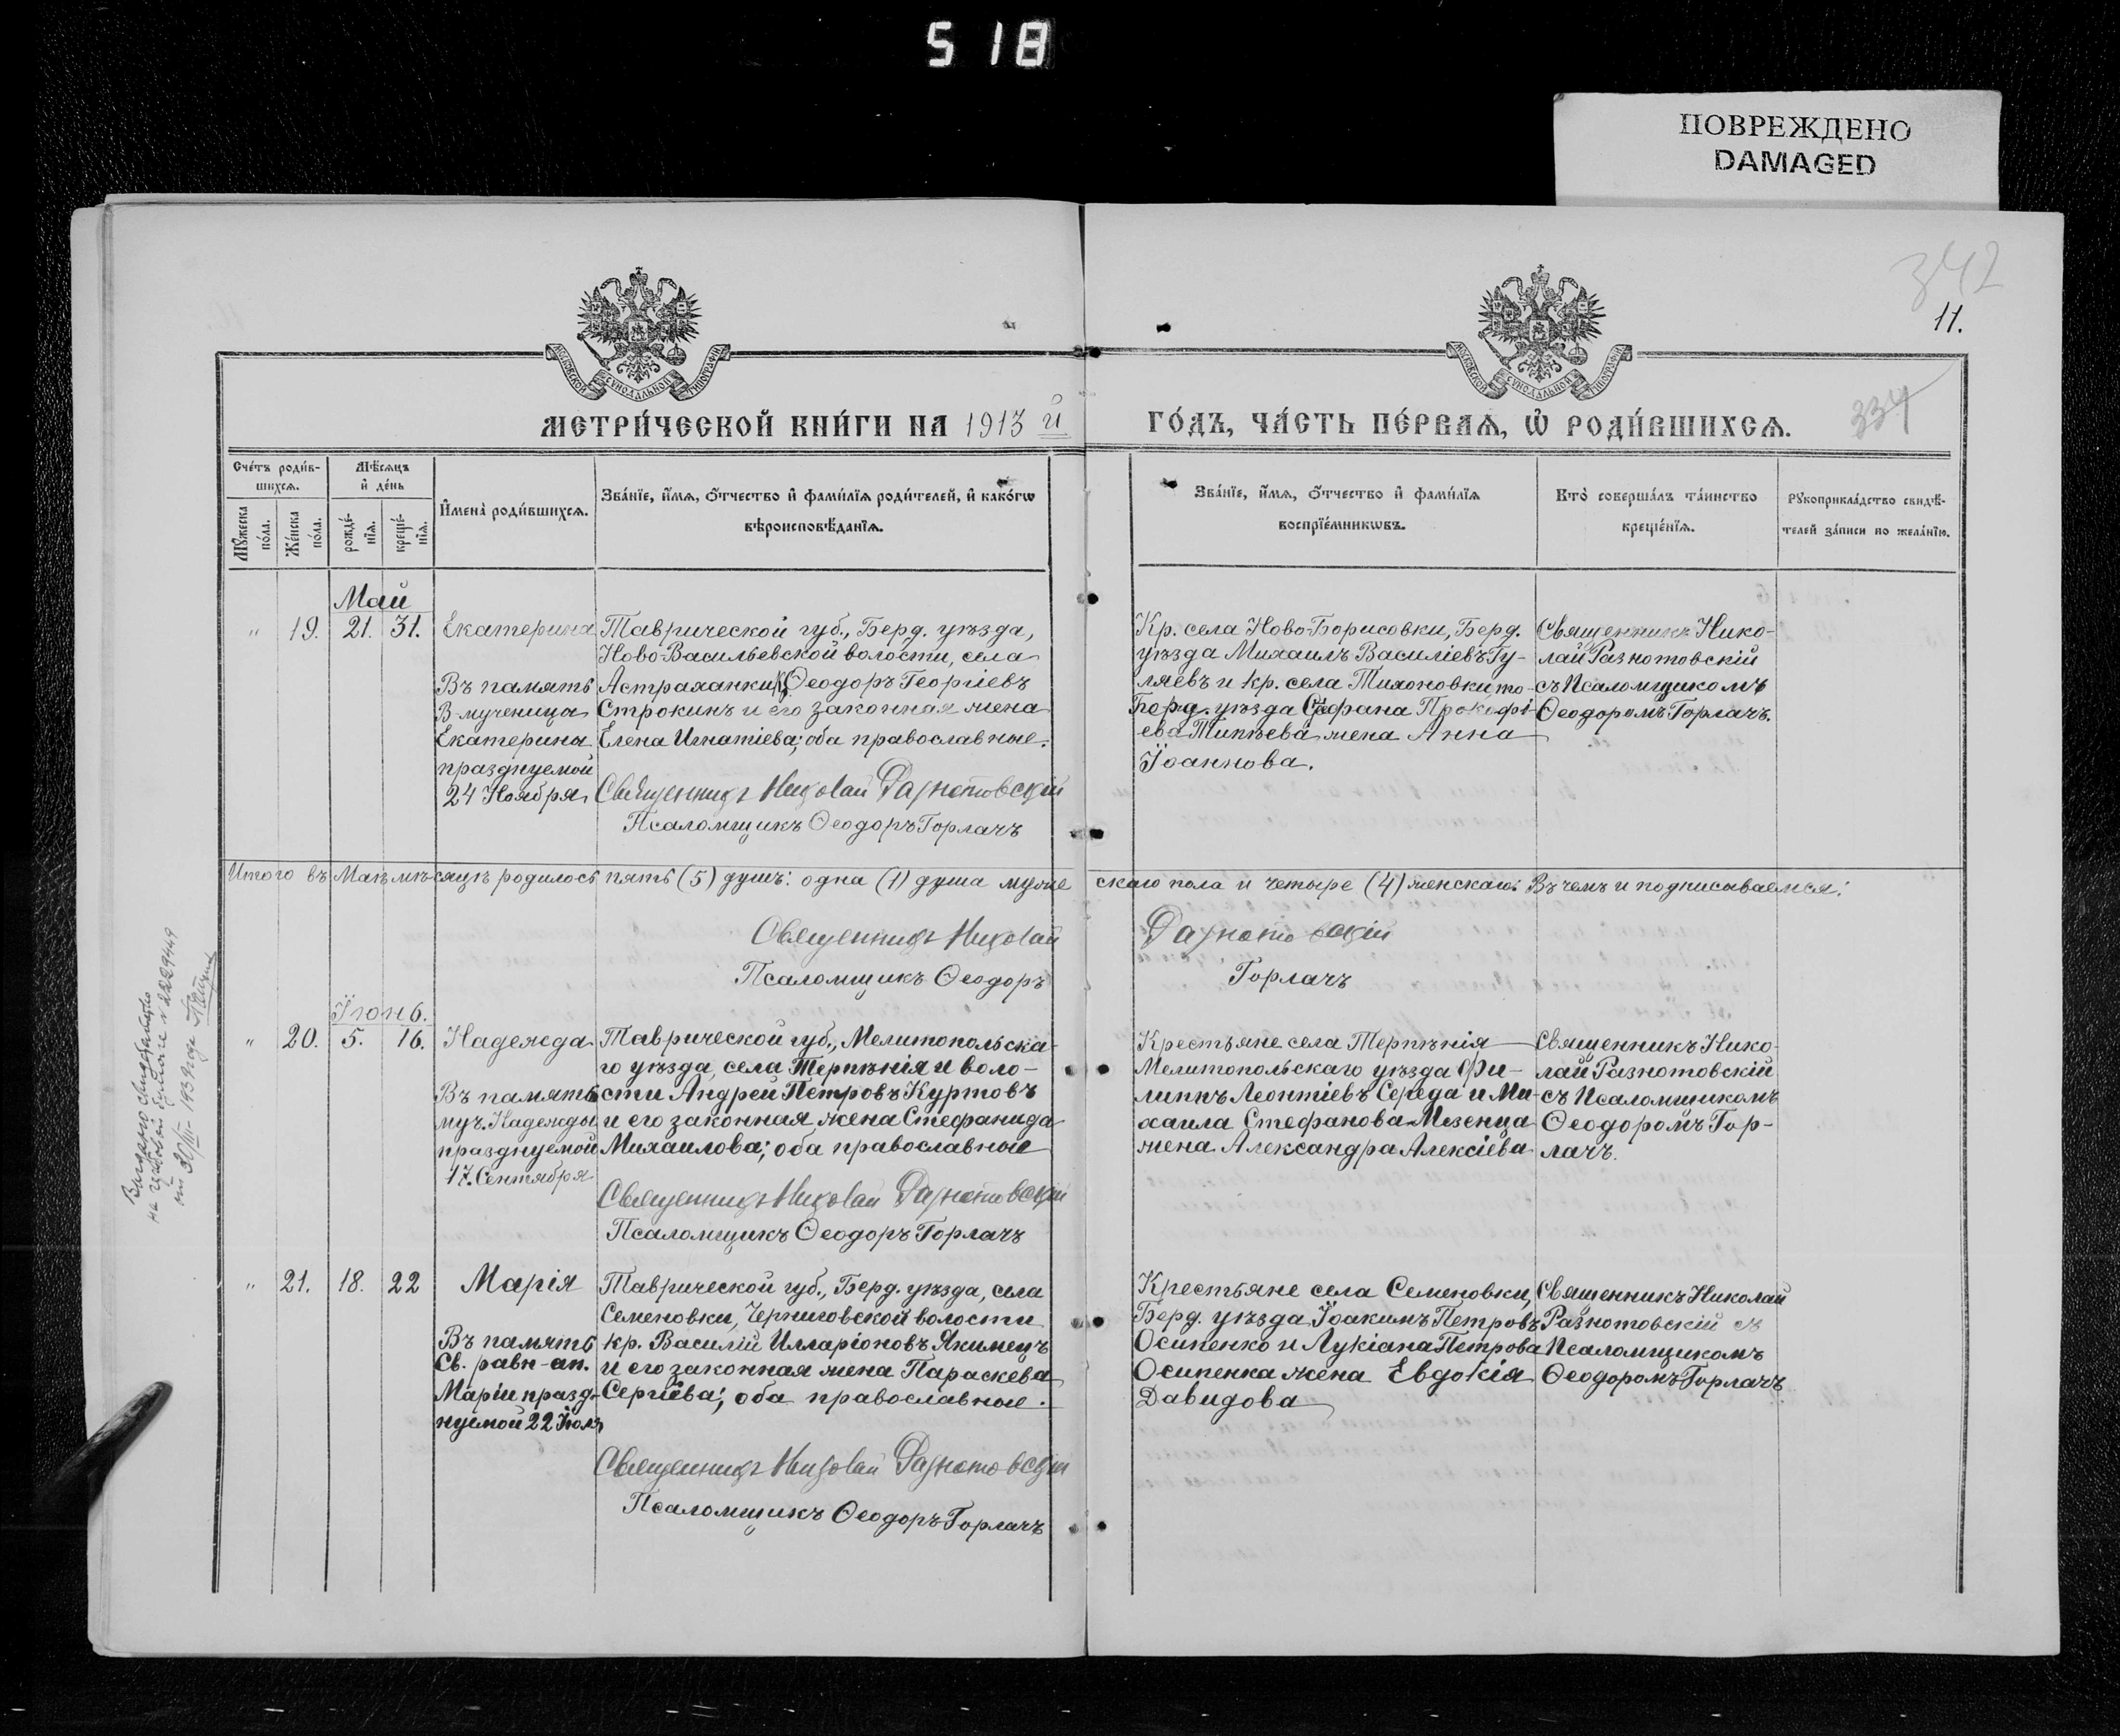 518
ПОВРЕЖДЕНО
DAMAGED
342
11.
МОСКОВСКОЙ СѴНОДАЛЬНОЙ ТИПОГРАФІИ
МОСКОВСКОЙ СѴНОДАЛЬНОЙ ТИПОГРАФІИ
МЕТРИ́ЧЕСКОЙ КНИ́ГИ НА 1913 й ГО́ДЪ, ЧА́СТЬ ПЕ́РВАѦ, Ѽ РОДИ́ВШИХСѦ.
334
Сче́тъ роди́в-
шихсѧ.
Мѣ́сѧцъ
и҆ де́нь
Мꙋ́жеска
по́ла.
Же́нска
по́ла.
рожде́-
нїѧ.
креще́-
нїѧ.
И҆мена̀ роди́вшихсѧ.
Зва́нїе, и҆́мѧ, ѻ҆́тчество и҆ фами́лїѧ роди́телей, и҆ како́гѡ
вѣроисповѣ́данїѧ.
Зва́нїе, и҆́мѧ, ѻ҆́тчество и҆ фами́лїѧ
воспрїе́мникѡвъ.
Кто̀ соверша́лъ та́инство
креще́нїѧ.
Рꙋкоприкла́дство свидѣ́-
телей за́писи по жела́нїю.
Май
" 19. 21. 31.
Екатерина
Въ память
В-мученица
Екатерины
празднуемой
24 Ноября
Таврической губ., Берд. уѣзда,
Ново-Васильевской волости, села
Астраханки Ѳеодоръ Георгіевъ
Строкинъ и его законная жена
Елена Игнатіева; оба православные.
Священникъ Николай Разнотовскій
Псаломщикъ Ѳеодоръ Горлачъ
Кр. села Ново-Борисовки, Берд.
уѣзда Михаилъ Василіевъ Гу-
ляевъ и кр. села Тихоновки то-
Берд. уѣзда Стефана Прокофі-
ева Типѣева жена Анна
Іоаннова.
Священникъ Нико-
лай Разнотовскій
съ Псаломщикомъ
Ѳеодоромъ Горлачъ.
Итого въ Маѣ мѣсяцѣ родилось пять (5) душъ: одна (1) душа муже скаго пола и четыре (4) женскаго: Въ чемъ и подписываемся:
Священникъ Николай Разнотовскій
Псаломщикъ Ѳеодоръ Горлачъ
Выдано свидетельство
на гербовой бумаге № 2229449
от 20/III-1939 года
Іюнь.
" 20. 5. 16.
Надежда
Въ память
муч. Надежды
празднуемой
17. Сентября
Таврической губ., Мелитопольска-
го уѣзда, села Терпѣнія и воло-
сти Андрей Петровъ Куртовъ
и его законная жена Стефанида
Михаилова; оба православные
Священникъ Николай Разнотовскій
Псаломщикъ Ѳеодоръ Горлачъ
Крестьяне села Терпѣнія
Мелитопольскаго уѣзда Фи-
липпъ Леонтіевъ Середа и Ми-
хаила Стефанова Мезенца
жена Александра Алексіева
Священникъ Нико-
лай Разнотовскій
съ Псаломщикомъ
Ѳеодоромъ Гор-
лачъ.
" 21. 18. 22
Марія
Въ память
Св. равн-ап.
Маріи празд-
нуемой 22 Іюля
Таврической губ., Берд. уѣзда, села
Семеновки, Черниговской волости
кр. Василій Илларіоновъ Якимецъ
и его законная жена Параскева
Сергіева; оба православные.
Священникъ Николай Разнотовскій
Псаломщикъ Ѳеодоръ Горлачъ
Крестьяне села Семеновки,
Берд. уѣзда Іоакимъ Петровъ
Осипенко и Лукіана Петрова
Осипенка жена Евдокія
Давидова
Священникъ Николай
Разнотовскій съ
Псаломщикомъ
Ѳеодоромъ Горлачъ